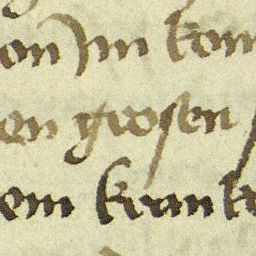 on im kom
en grosen
em krank